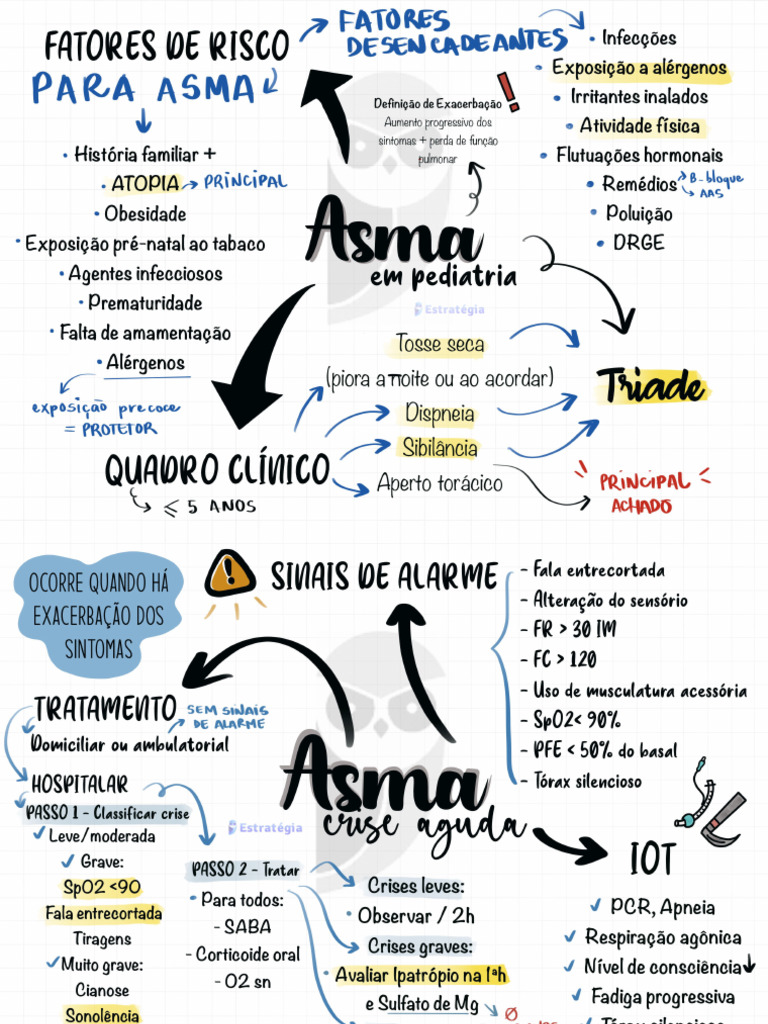 FATORES DE RISCO
PARA ASMA
História familiar +
ATOPIA PRINCIPAL
Obesidade
Exposição pré-natal ao tabaco
Agentes infecciosos
Prematuridade
Falta de amamentação
Alérgenos
exposição precoce
= PROTETOR
FATORES
DESENCADEANTES
Infecções
Exposição a alérgenos
Irritantes inalados
Atividade física
Flutuações hormonais
Remédios B-bloque
AAS
Poluição
DRGE
Definição de Exacerbação
Aumento progressivo dos
sintomas + perda de função
pulmonar
Asma
em pediatria
Estratégia
QUADRO CLÍNICO
≤ 5 ANOS
Tosse seca
(piora a noite ou ao acordar)
Dispneia
Sibilância
Aperto torácico
Triade
PRINCIPAL
ACHADO
OCORRE QUANDO HÁ
EXACERBAÇÃO DOS
SINTOMAS
SINAIS DE ALARME
- Fala entrecortada
- Alteração do sensório
- FR > 30 IM
- FC > 120
- Uso de musculatura acessória
- SpO2< 90%
- PFE < 50% do basal
- Tórax silencioso
TRATAMENTO
SEM SINAIS
DE ALARME
Domiciliar ou ambulatorial
HOSPITALAR
PASSO 1 - Classificar crise
Leve/moderada
Grave:
SpO2 <90
Fala entrecortada
Tiragens
Muito grave:
Cianose
Sonolência
Asma
crise aguda
Estratégia
PASSO 2 - Tratar
Para todos:
- SABA
- Corticoide oral
- O2 sn
Crises leves:
Observar / 2h
Crises graves:
Avaliar Ipatrópio na 1ªh
e Sulfato de Mg
IOT
PCR, Apneia
Respiração agônica
Nível de consciência
Fadiga progressiva
Tórax silencioso